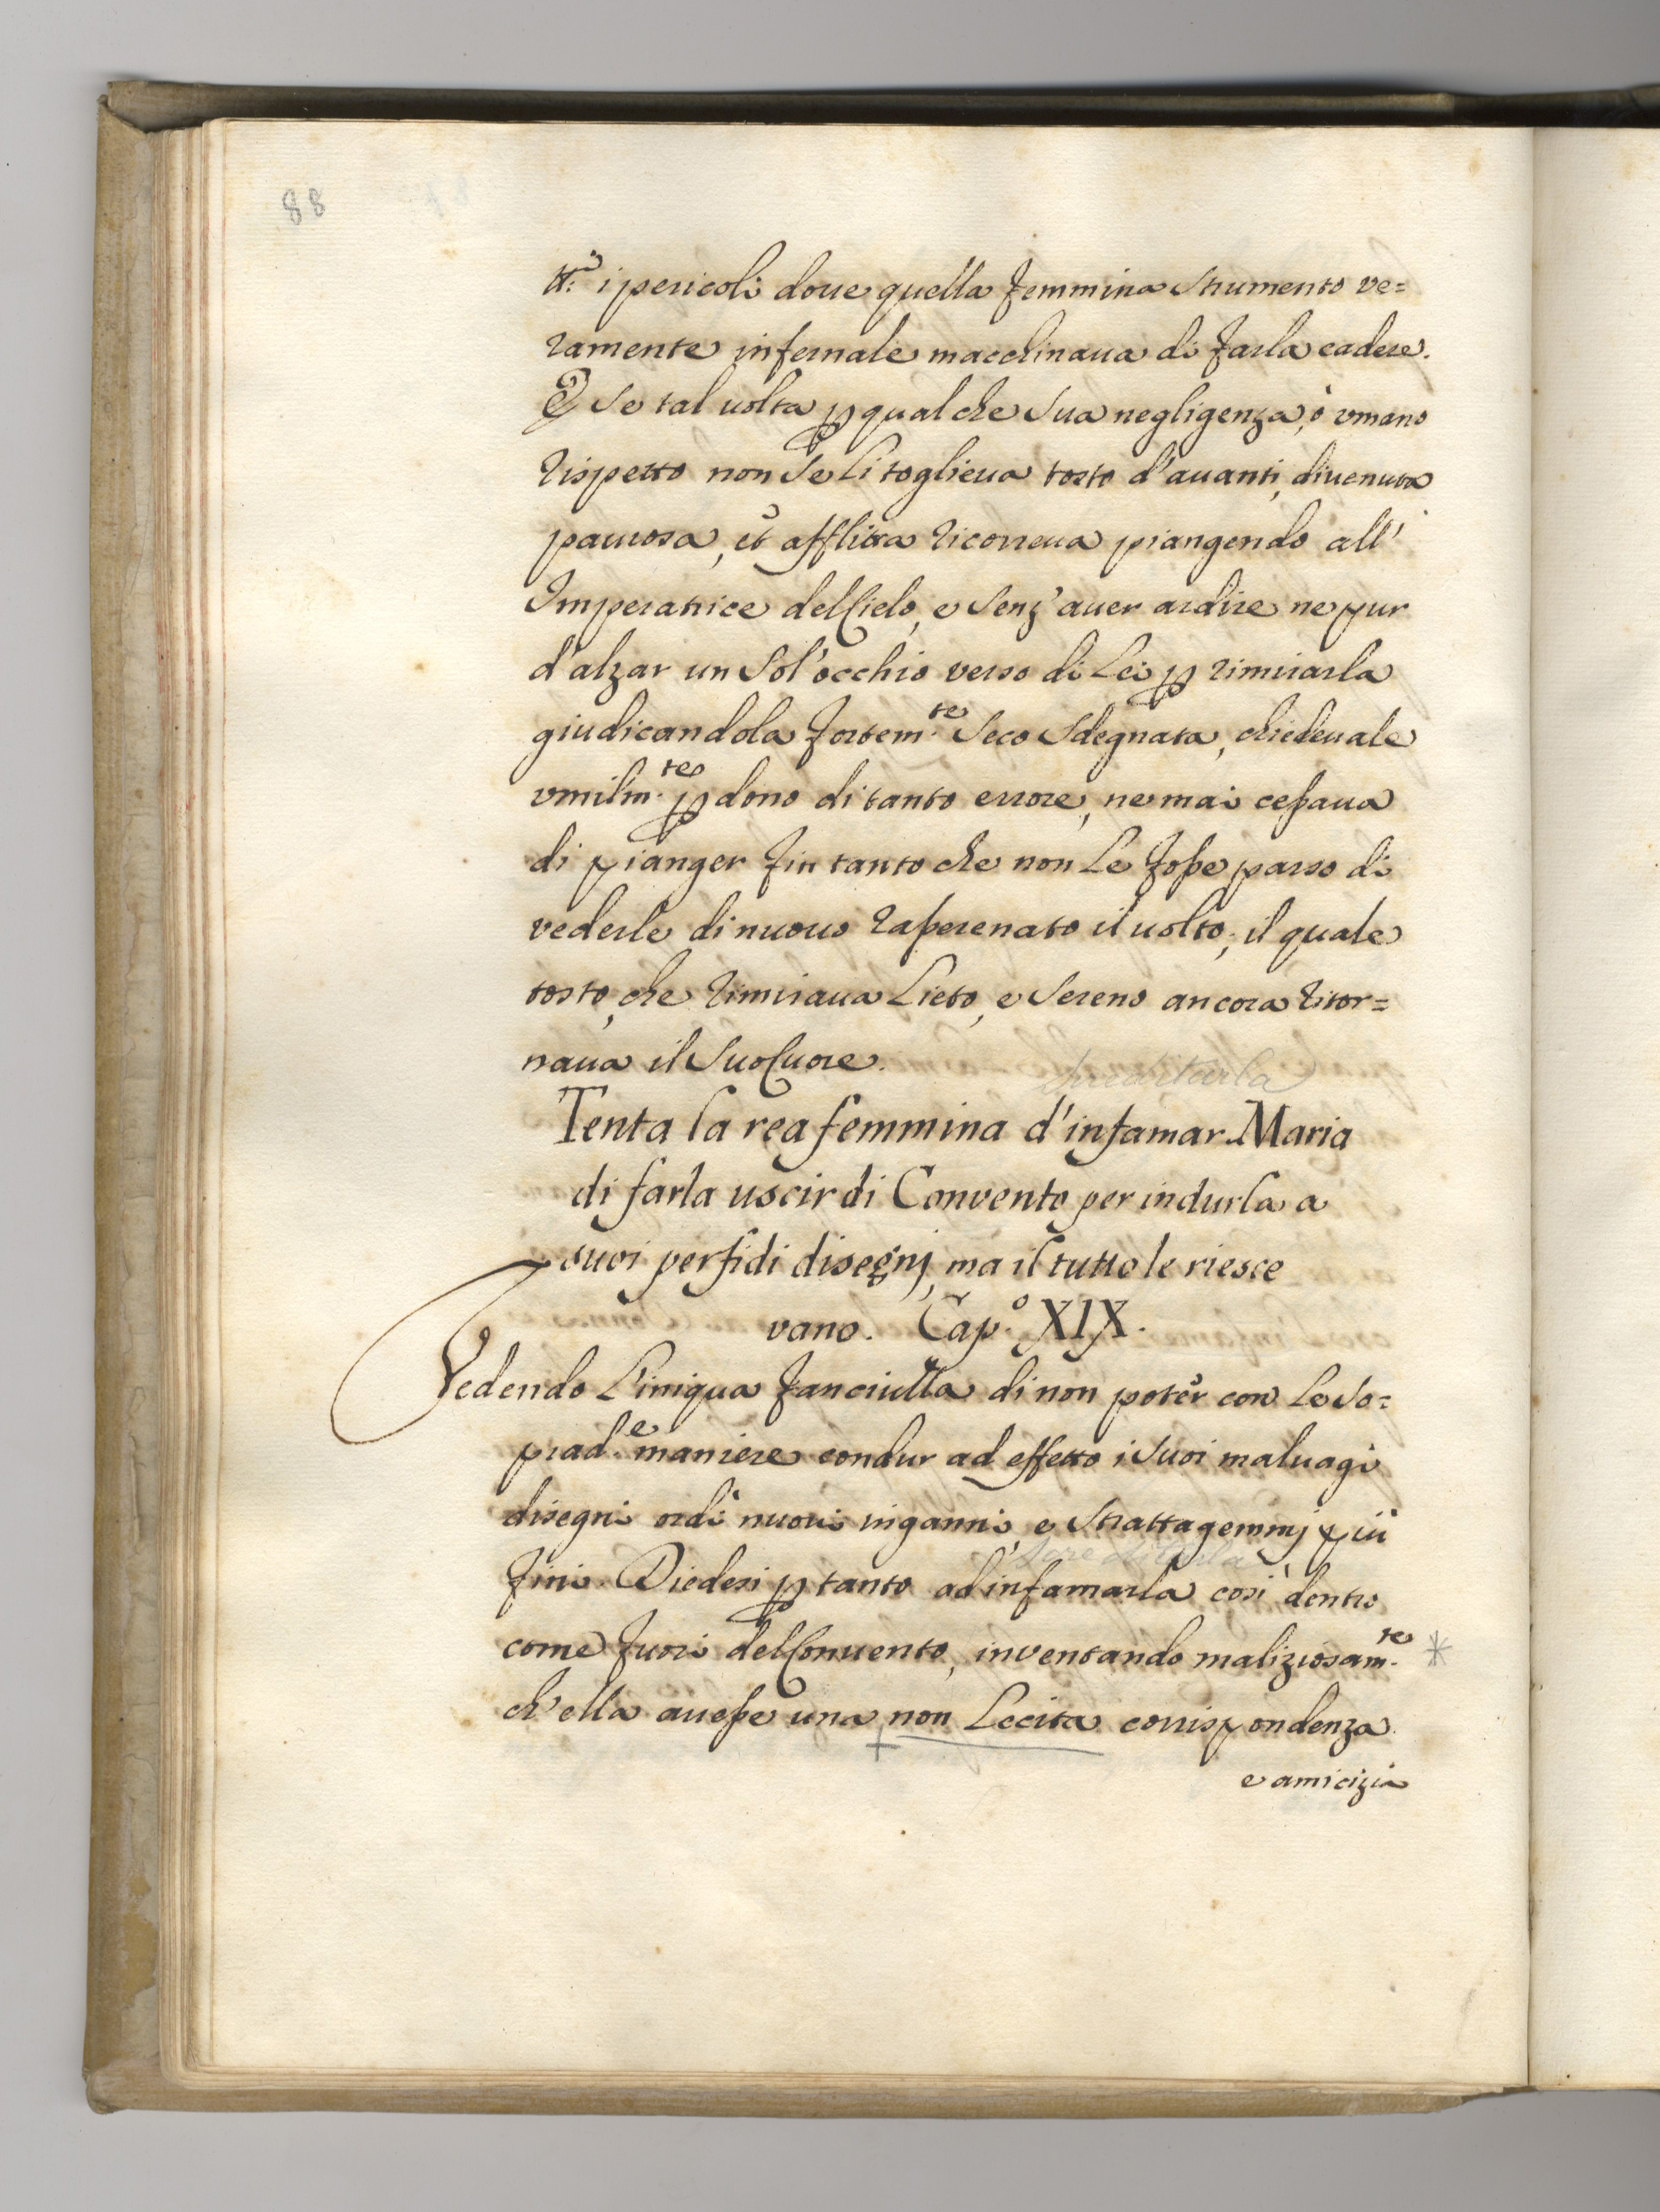 88
tt.i i pericoli doue quella femmina strumento ve=
ramente infernale macchinaua di farla cadere.
E se tal uolta p qualche sua negligenza, ò vmano
rispetto non se li toglieua tosto d'auanti, diuenuta
paurosa, et afflitta ricorreua piangendo all'
Imperatrice del Cielo, e senz'auer ardire ne pur
d'alzar un sol'occhio verso di Lei p rimirarla
giudicandola fortem.te seco sdegnata, chiedeuale
vmilm.te pdono di tanto errore, ne mai cessaua
di pianger fin tanto che non le fosse parso di
vederle di nuouo rasserenato il uolto; il quale
tosto, che rimiraua lieto, e sereno ancora ritor=
naua il suo Cuore.
screditarla
Tenta la rea femmina d'infamar Maria
di farla uscir di Convento per indurla a
suoi perfidi disegnj, ma il tutto le riesce
vano. Cap.o XIX.
Vedendo l'iniqua fanciulla di non poter con le so=
prad.e maniere condur ad effetto i suoi maluagi
disegni ordì nuoui inganni, e strattagemmj più
screditarla
fini. Diedesi p tanto ad infamarla così dentro
come fuori del Conuento, inventando maliziosam.te *
ch'ella auesse una non lecita corrispondenza
+
e amicizia